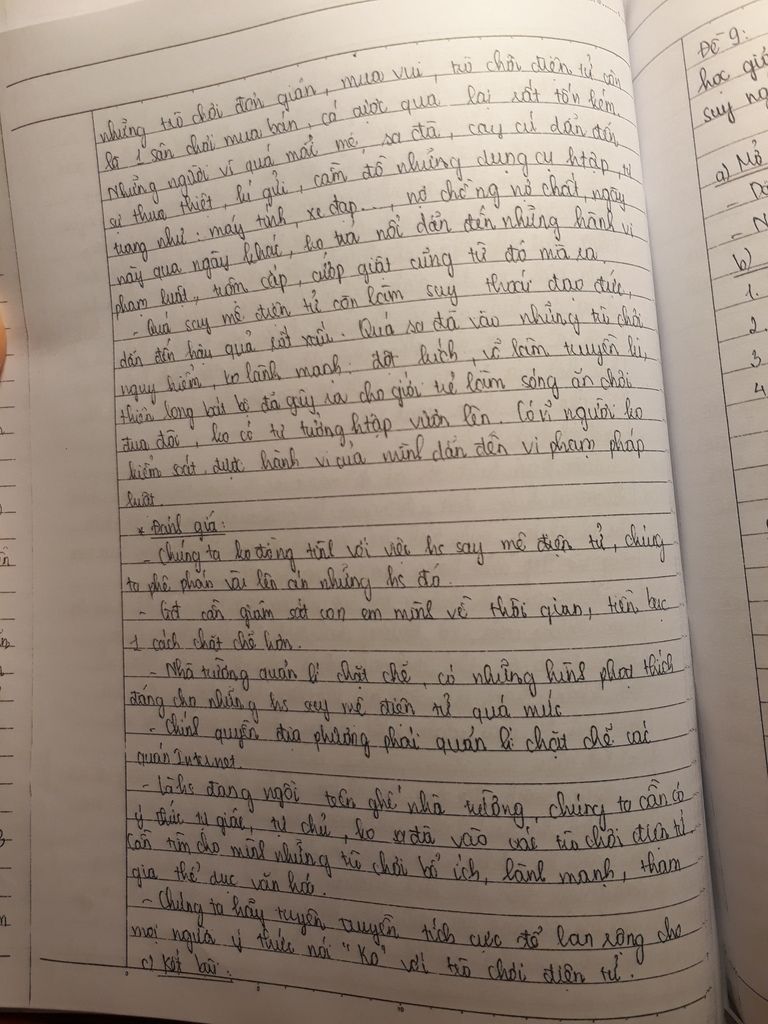 những trò chơi đơn giản, mua vui, trò chơi điện tử còn
là 1 sân chơi mua bán, cá cược qua lại rất tốn kém.
Những người vì quá mải mê, sa đà, cay cú dẫn đến
sự thua thiệt, kí gửi, cầm đồ những dụng cụ htập, tư
trang như: máy tính, xe đạp..., nợ chồng nợ chất, ngày
này qua ngày khác, ko trả nổi dẫn đến những hành vi
phạm luật, trộm cắp, cướp giật cũng từ đó mà ra.
- Quá say mê điện tử còn làm suy thoái đạo đức,
dẫn đến hậu quả rất xấu. Quá sa đà vào những trò chơi
nguy hiểm, ko lành mạnh: đột kích, võ lâm truyền kì,
thiên long bát bộ đã gây ra cho giới trẻ làm sóng ăn chơi
đua đòi, ko có tư tưởng htập vươn lên. Có người ko
kiểm soát được hành vi của mình dẫn đến vi phạm pháp
luật.
* Đánh giá:
- Chúng ta ko đồng tình với việc hs say mê điện tử, chúng
ta phê phán và lên án những hs đó.
- Gđ cần giám sát con em mình về thời gian, tiền bạc
1 cách chặt chẽ hơn.
- Nhà trường quản lí chặt chẽ, có những hình phạt thích
đáng cho những hs say mê điện tử quá mức
- Chính quyền địa phương phải quản lí chặt chẽ các
quán Internet.
- Là hs đang ngồi trên ghế nhà trường, chúng ta cần có
ý thức tự giác, tự chủ, ko sa đà vào các trò chơi điện tử.
Cần tìm cho mình những trò chơi bổ ích, lành mạnh, tham
gia thể dục văn hoá.
- Chúng ta hãy tuyên truyền tích cực để lan rộng cho
mọi người ý thức nói "Ko" với trò chơi điện tử.
c) Kết bài:
Đề 9:
học
suy ng
a) Mở
b)
1.
2.
3
4